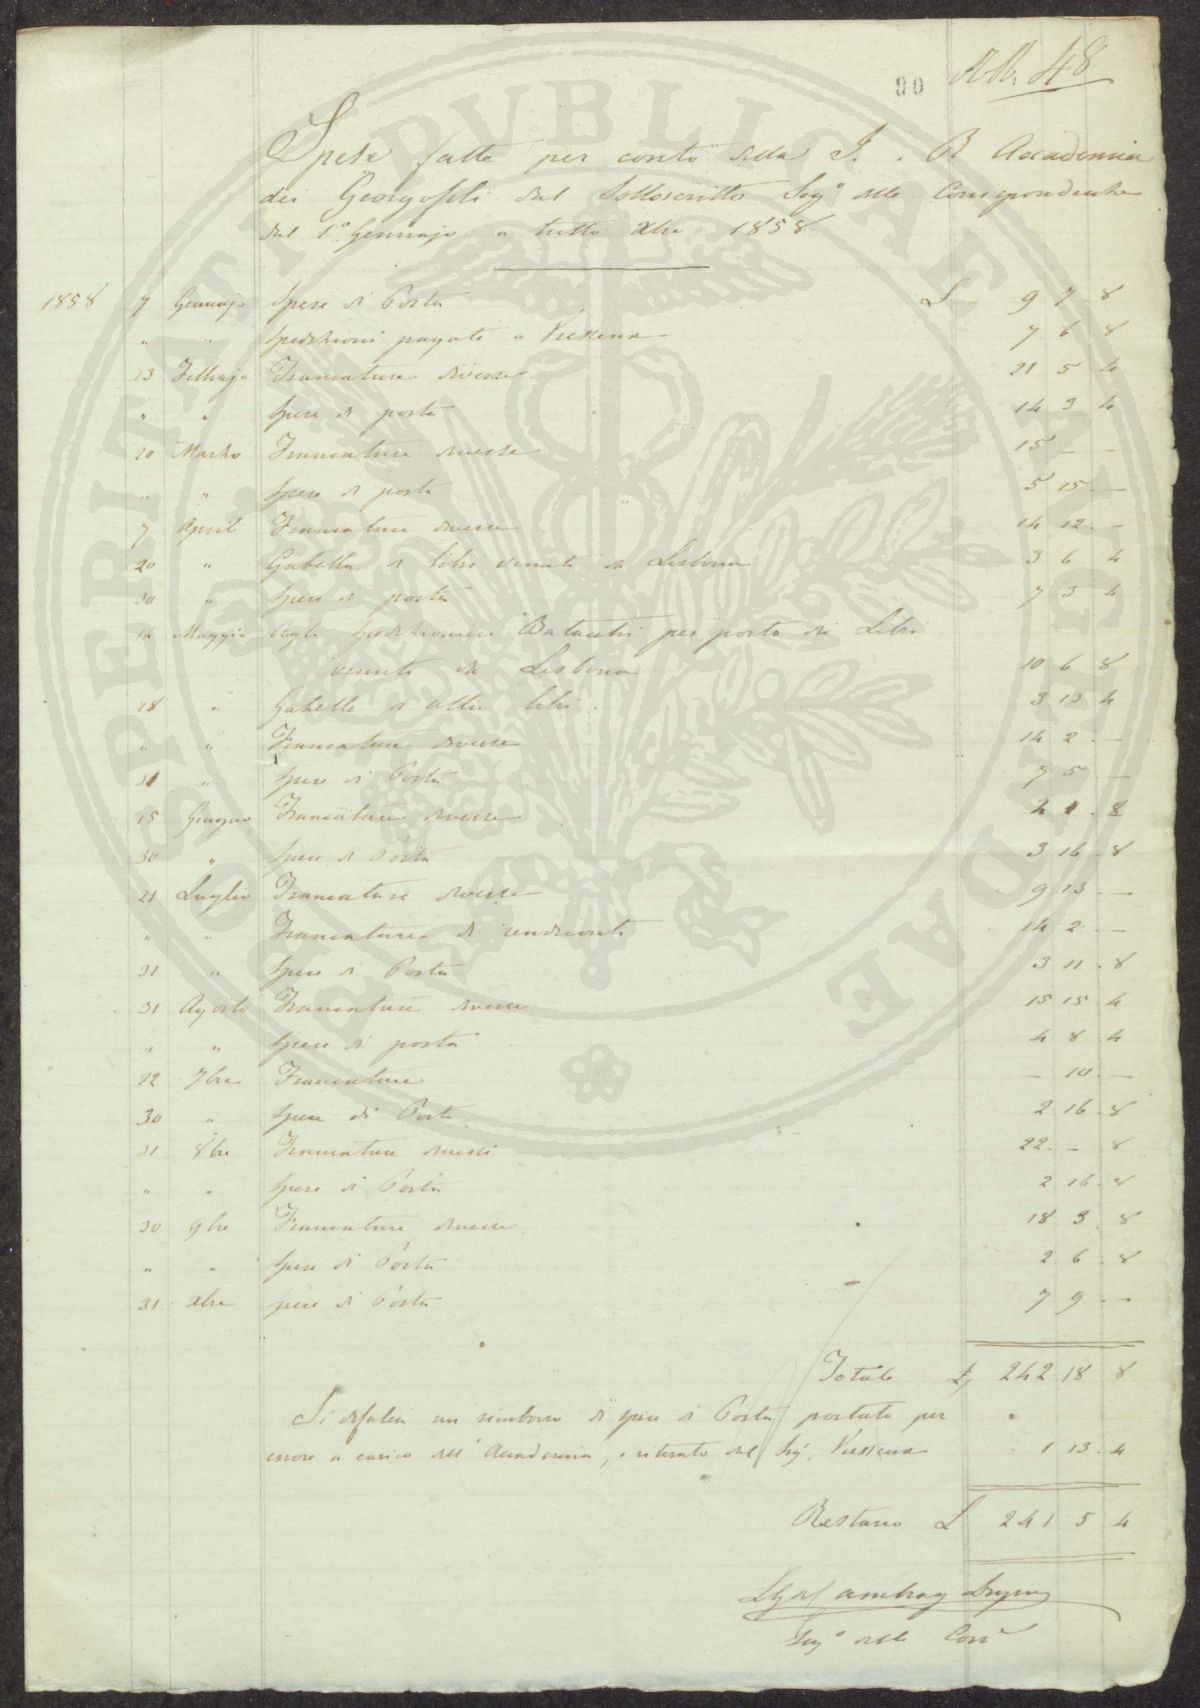 80 N.º 48
Spese fatte per conto della I. e R. Accademia
dei Georgofili dal Sottoscritto Segº delle Corrispondenze
dal 1º Gennajo a tutto Xbre 1858
1858 7 Gennajo Spese di Posta £ 9 7 8
" " Spedizioni pagate a Vieusseux 7 6 8
13 Febbrajo Francature diverse 21 5 4
" " Spese di posta 14 3 4
20 Marzo Francature diverse 15 – –
" " Spese di posta 5 15 –
7 April Francature diverse 14 12 –
20 " Gabella di libri venuti da Lisbona 3 6 4
30 " Spese di posta 7 3 4
14 Maggio Agli Spedizionieri Batacchi per porto di Libri
venuti da Lisbona 10 6 8
28 " Gabella di altri libri 3 13 4
" " Francature diverse 14 2 –
31 " Spese di Posta 7 5 –
15 Giugno Francature diverse 4 1 8
30 " Spese di Posta 3 16 8
21 Luglio Francature diverse 9 13 –
" " Francature di rendiconti 14 2 –
31 " Spese di Posta 3 11 8
31 Agosto Francature diverse 15 15 4
" " Spese di posta 4 8 4
22 7bre Francature – 10 –
30 " Spese di Posta 2 16 8
31 8bre Francature diverse 22 – 8
" " Spese di Posta 2 16 8
30 9bre Francature diverse 18 3 8
" " Spese di Posta 2 6 8
31 Xbre pese di Posta 7 9 –
Totale £ 242 18 8
Si defalca un rimborso di spese di Posta portato per
errore a carico dell'Accademia, e ritirato dal Sigr. Vieusseux 1 13 4
Restano £ 241 5 4
L G de Cambray Digny
Segº delle Corrº
PROSPERITATI PUBLICAE AUGENDAE